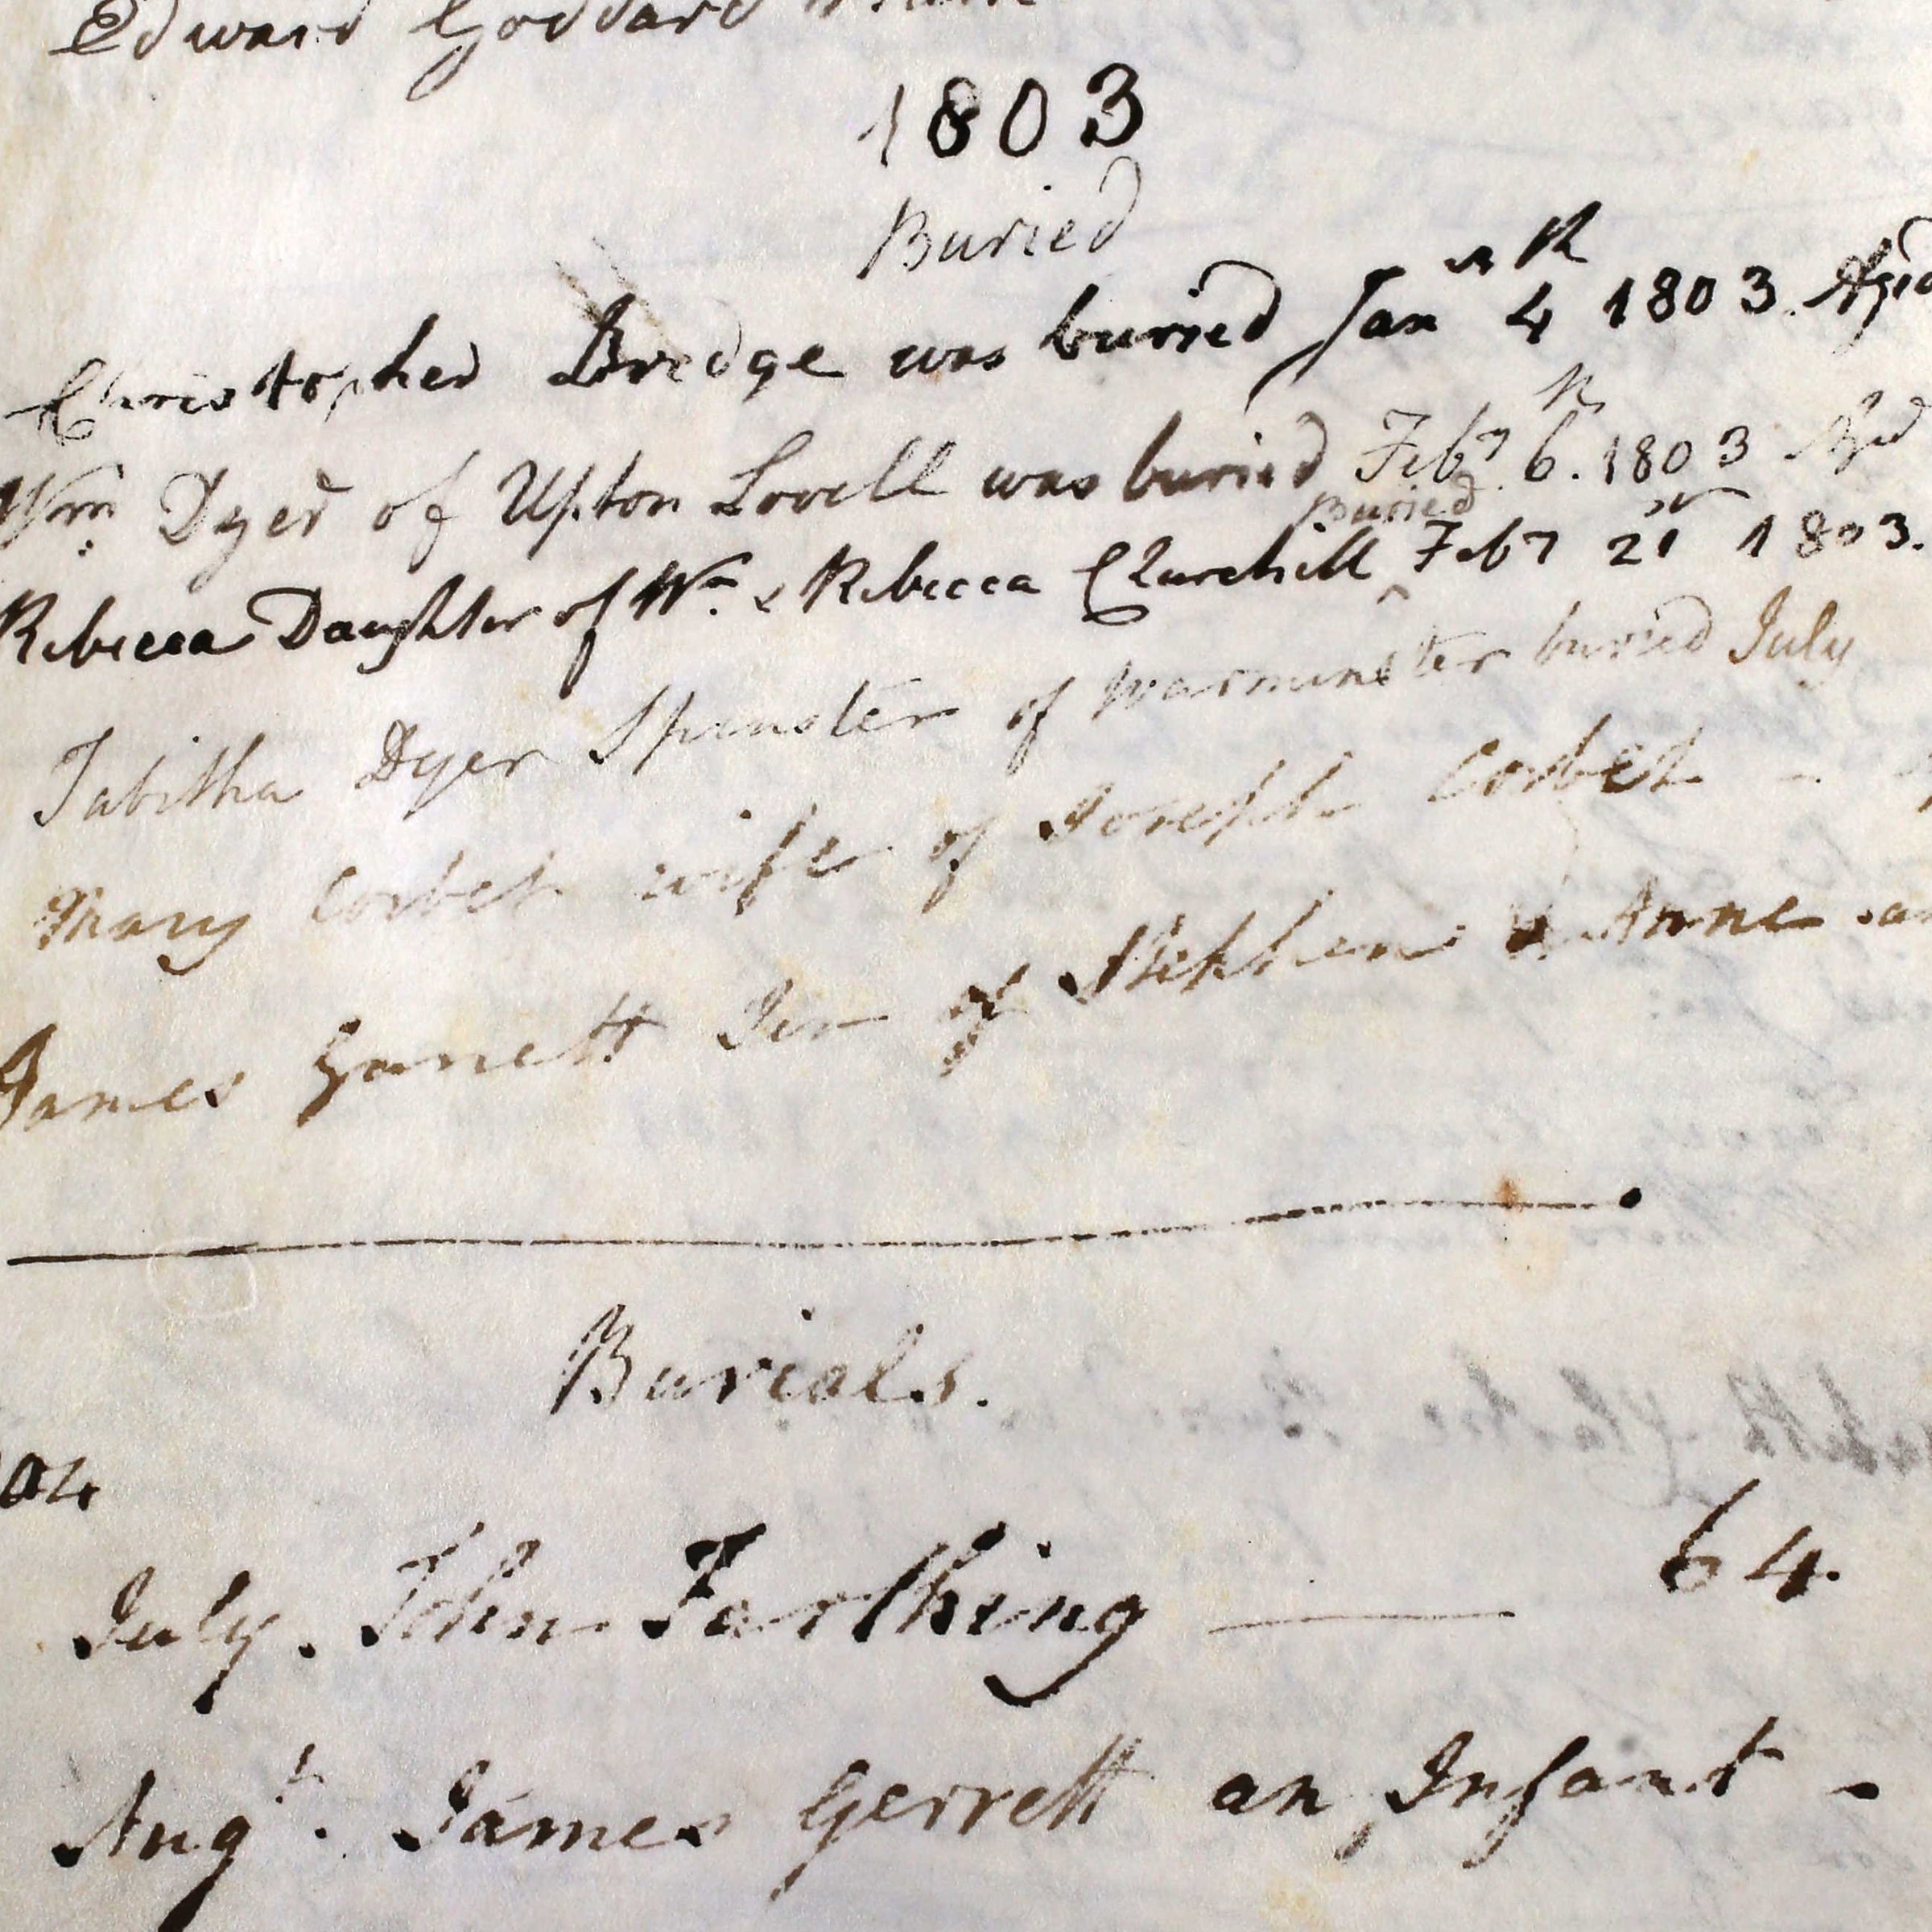 Edward Goddard
1803
Buried
Christopher Bredge was buried Jan 4 1803. Aged
Wm Dyer of Upton Lovell was buried Feby 6th. 1803 Agd
Rebecca Daughter of Wm. & Rebecca Churchill ^ Buried Feby 21st 1803.
Tabitha Dyer Spinster of Warminster buried July
Mary Corbet wife of Joseph Corbet -
James Garrett Son of Stephen & Anne
Burials.
04
July. John Farthing — 64.
Augt. James Gerrett an Infant -